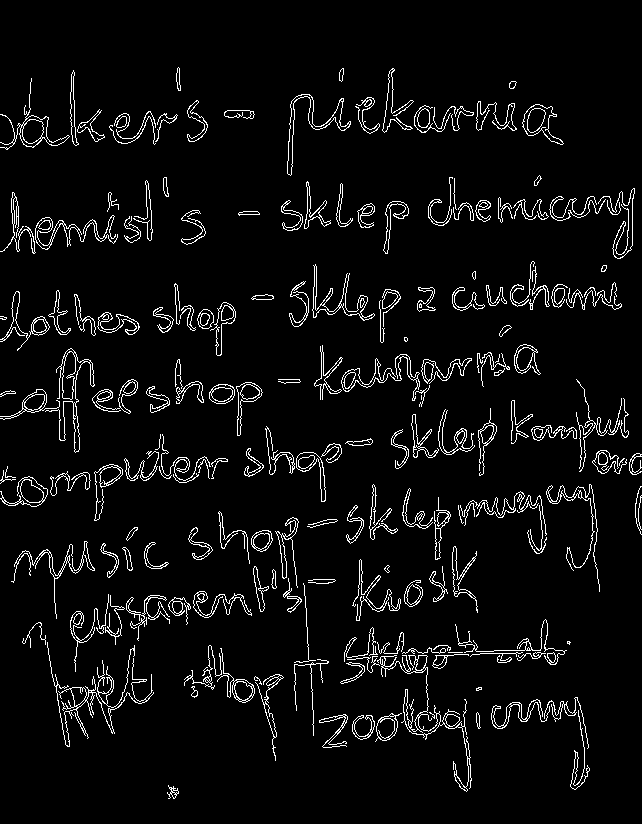 baker's - piekarnia
chemist's - sklep chemiczny
clothes shop - sklep z ciuchami
coffeeshop - kawiarnia
computer shop - sklep komput
music shop - sklep muzyczny
- kiosk
pet shop - sklep
zoologiczny